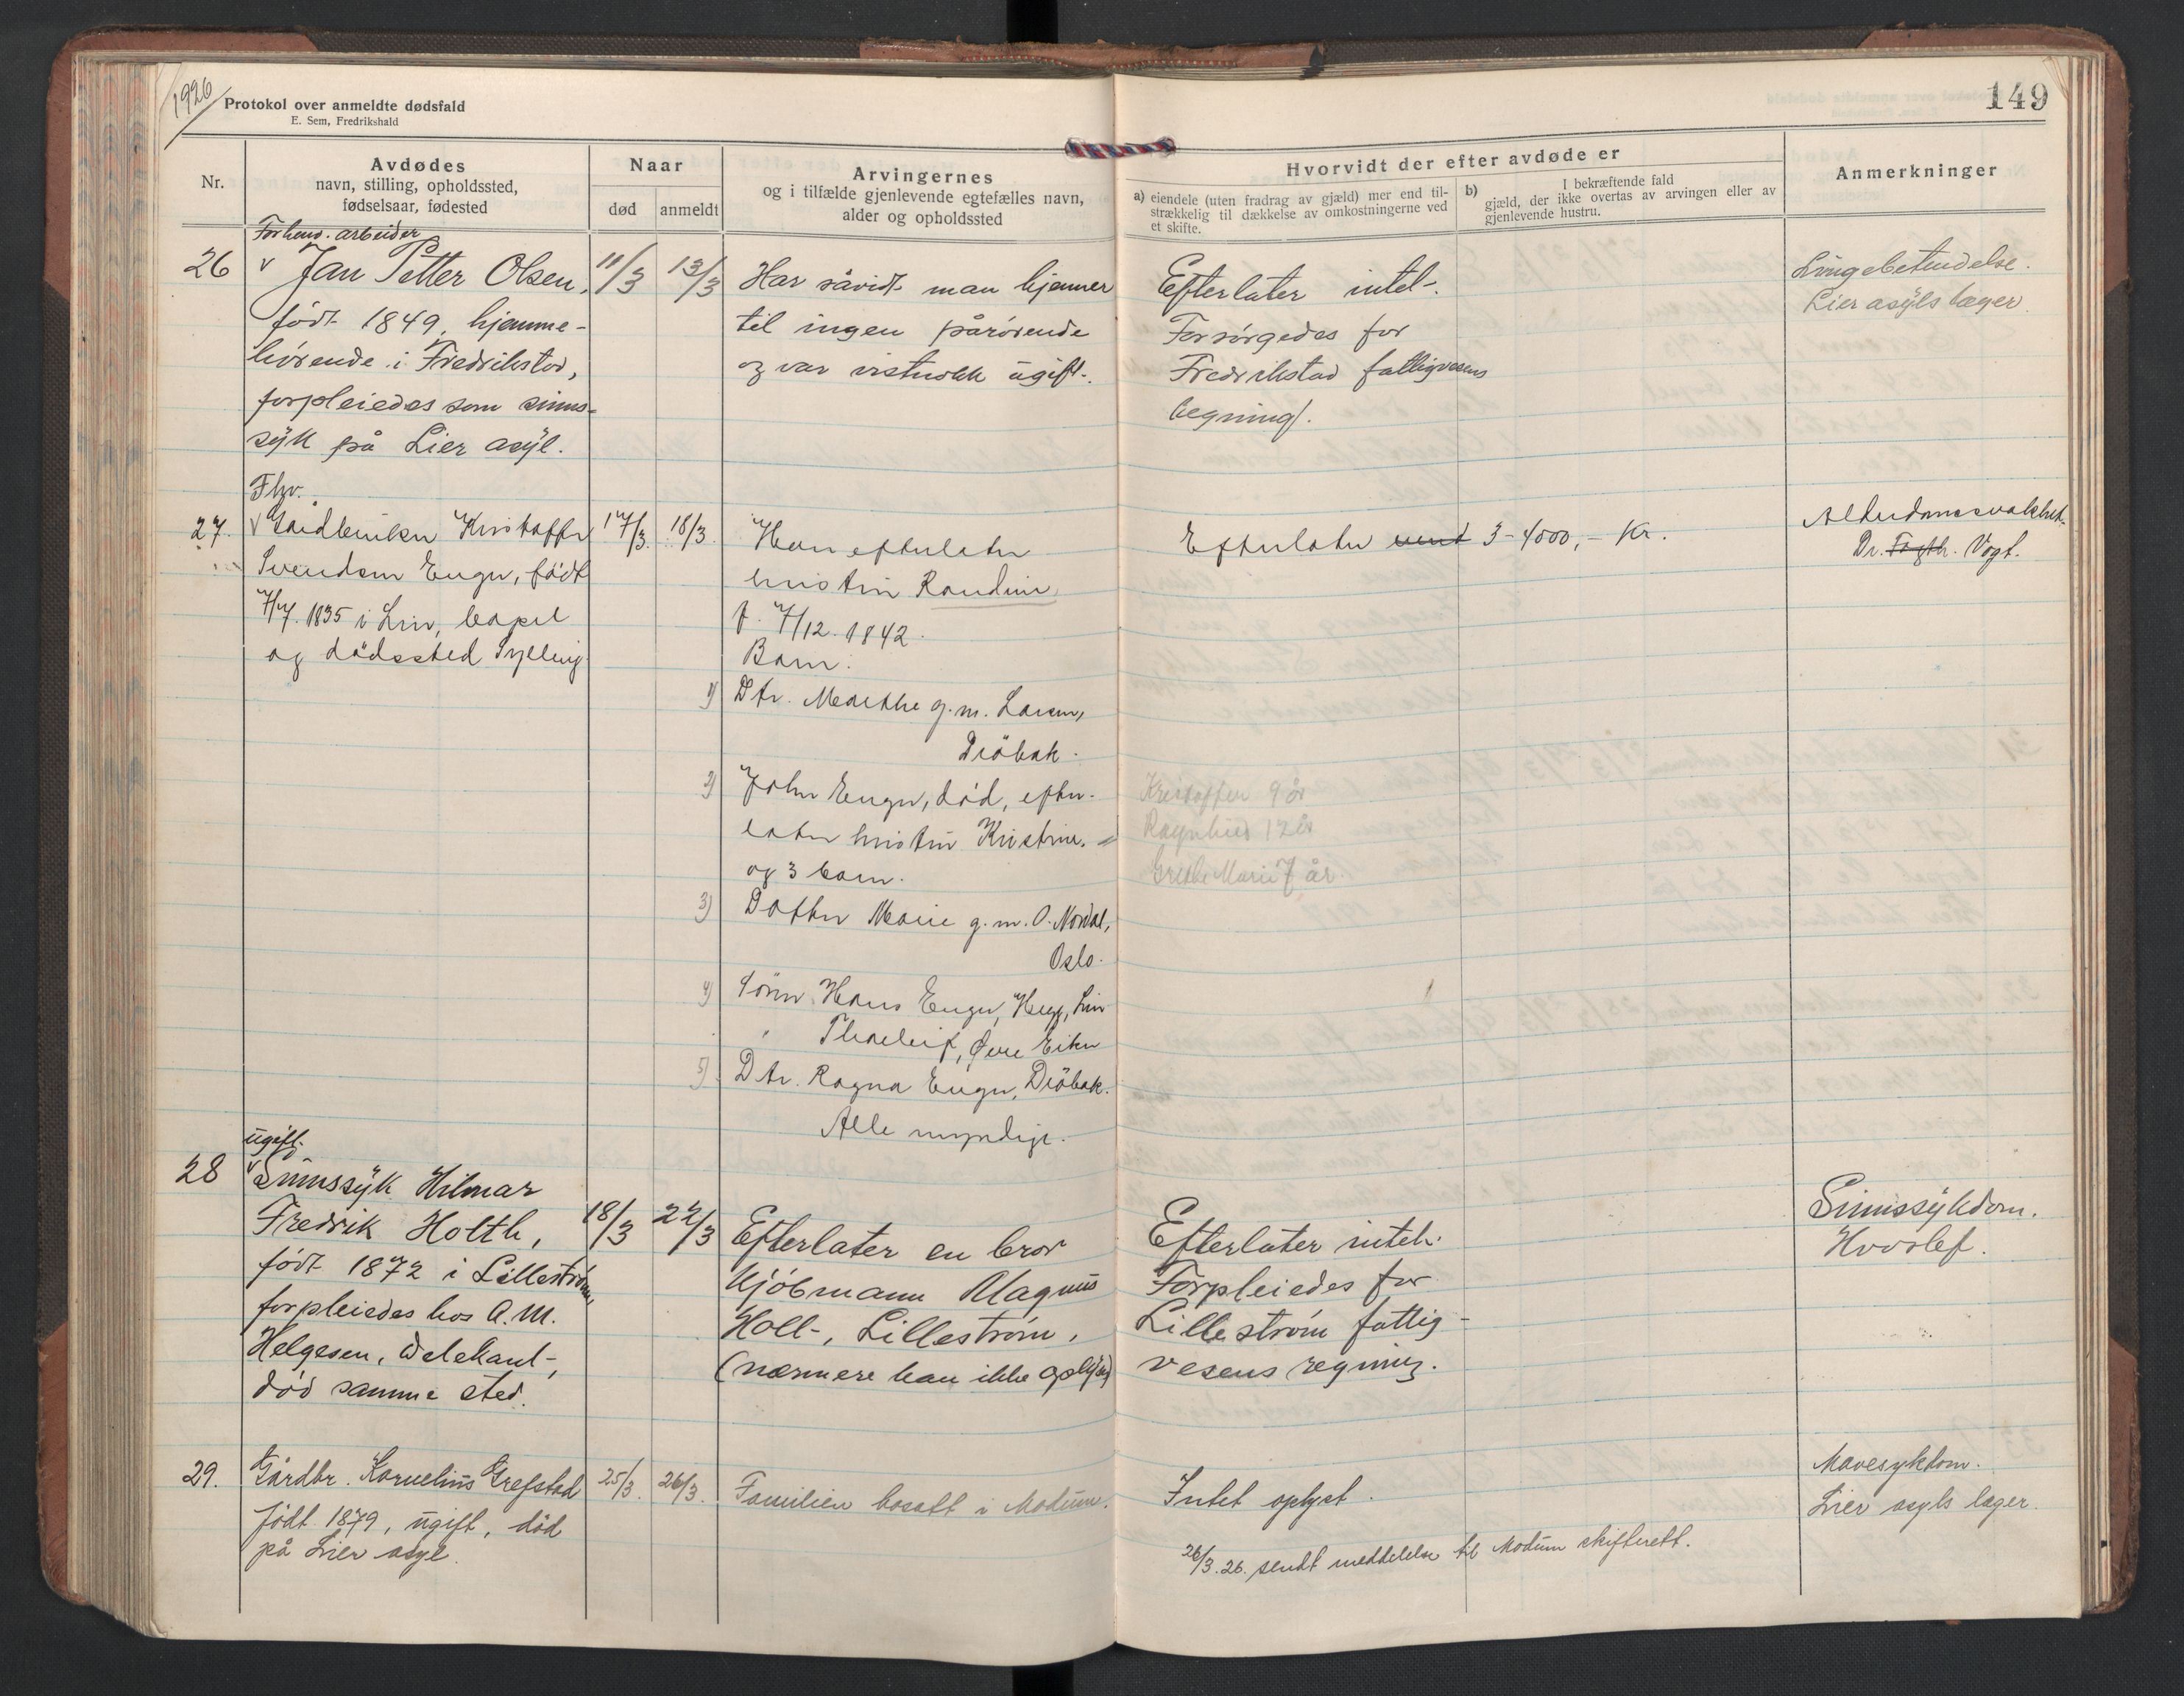 1926
Protokol over anmeldte dødsfald
E. Sem, Fredrikshald
149
Nr.
Avdødes
navn, stilling, opholdssted,
fødselsaar, fødested
Naar
død
anmeldt
Arvingernes
og i tilfælde gjenlevende egtefælles navn,
alder og opholdssted
Hvorvidt der efter avdøde er
a) eiendele (uten fradrag av gjæld) mer end til-
strækkelig til dækkelse av omkostningerne ved
et skifte.
b) I bekræftende fald
gjæld, der ikke overtas av arvingen eller av
gjenlevende hustru.
Anmerkninger
26
Forhenv. arbeider
v Jan Petter Olsen,
født 1849, hjemme-
hörende i Fredrikstad,
forpleiedes som sinns-
syk på Lier asyl.
11/3
13/3
Har såvidt man kjenner
til ingen pårörende
og var vistnokk ugift.
Efterlater intet.
Forsörgedes for
Fredrikstad fattigvesens
regning.
Lungebetendelse.
Lier asyls læger.
27.
Fhv.
v Gårdbruker Kristoffer
Svendsen Enger, født
7/7. 1835 i Lier, bopel
og dödssted Sylling
17/3.
18/3.
Han efterlater
hustru Randine,
f. 7/12. 1842.
Barn:
1) Dtr. Marthe g.m. Larsen,
Dröbak.
2) John Enger, död, efter-
later hustru Kristine. =
og 3 barn.
3) Datter Marie g.m. O. Nordal,
Oslo.
4) Sönn Hans Enger, Hegg, Lier
" Thorleif, Øvre Eiker
5) Dtr. Ragna Enger, Dröbak.
Alle myndige.
Efterlater 3-4000,- Kr.
Kristoffer 9 år
Ragnhild 12 år
Grethe Marie 7 år.
Alderdomssvakhet.
Dr. Vogt.
28
ugift.
v Sinnssyk Hilmar
Fredrik Holth,
født 1872 i Lilleström,
forpleiedes hos A.M.
Helgesen,
död samme sted.
18/3
22/3
Efterlater en bror
Kjöbmann Magnus
Holt, Lilleström.
(nærmere kan ikke oplyses)
Efterlater intet.
Forpleiedes for
Lilleström fattig-
vesens regning.
Sinnssykdom.
Hvoslef.
29.
Gårdbr. Kornelius Grefstad
født 1879, ugift, död
på Lier asyl.
25/3.
26/3.
Familien bosatt i Modum.
Intet oplyst.
26/3.26. sendt meddelelse til Modum skifterett.
Mavesykdom.
Lier asyls læger.